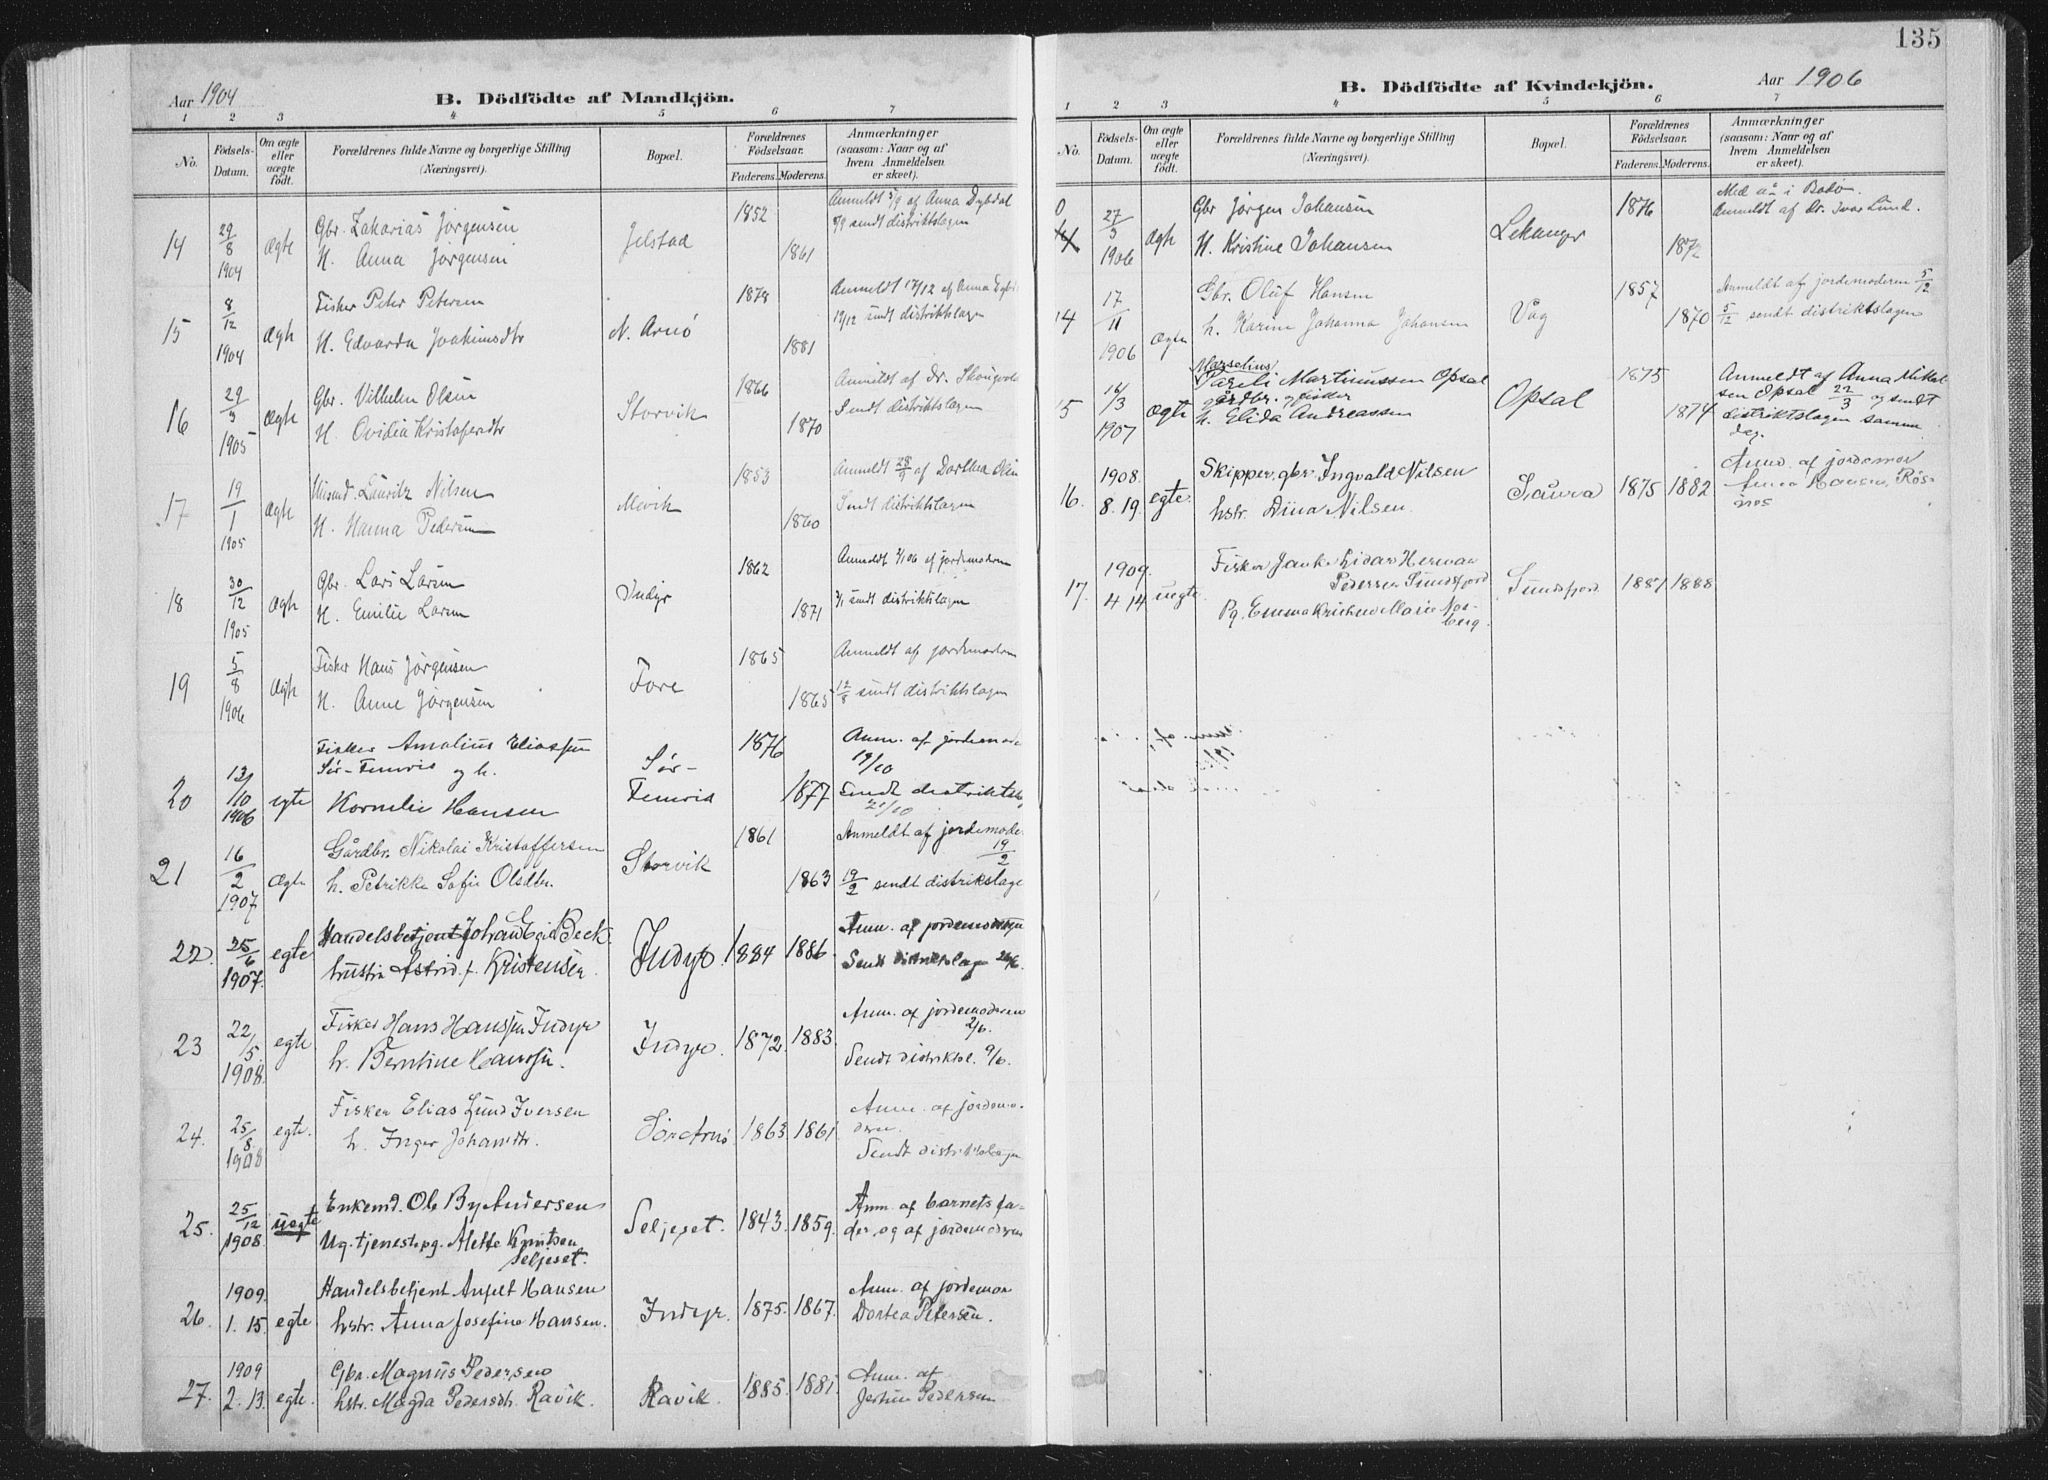 135
Aar 1904
B. Dödfödte af Mandkjön.
1 2 3 4 5 6 7
No.
Födsels-Datum.
Om ægte eller uægte födt.
Forældrenes fulde Navne og borgerlige Stilling (Næringsvei).
Bopæl.
Forældrenes Födselsaar.
Faderens. Moderens.
Anmærkninger (saasom: Naar og af hvem Anmeldelsen er skeet).
14 29/8 1904 ægte Gbr. Zakarias Jørgensen Jelstad 1852 Anmeldt 5/9 af Anna Dybdal
H. Anna Jørgensen 1861 sendt distriktslægen
15 8/12 1904 ægte Fisker Peter Petersen N. Arnö 1878 Anmeldt 12/12 af Anna
H. Edvarda Joakimsdtr 1881 12/12 sendt distriktslægen
16 29/3 1905 ægte Gbr. Vilhelm Olsen Storvik 1866 Anmeldt af dr.
H. Ovidia Kristofersdtr 1870 Sendt distriktslægen
17 19/1 1905 ægte Lauritz Nilsen Mevik 1853 Anmeldt af Dorthea
H. Hanna Pedersen 1860 Sendt distriktslægen
18 30/12 1905 ægte Gbr. Lars Larsen Indyr 1862 Anmeldt af jordemoderen
H. Emilie Larsen 1871 sendt distriktslægen
19 5/8 1906 ægte Fisker Hans Jørgensen Fore 1865 Anmeldt af jordemoderen
H. Anne Jørgensen 1865 12/8 sendt distriktslægen
20 13/10 1906 egte Fisker Amalius Eliassen Sør- 1876 Anm. af jordemode
og h. 19/10
Kornelie Hansen 1877 Sendt distriktslæg
21 16/2 1907 ægte Gårdbr. Nikolai Kristoffersen Storvik 1861 Anmeldt af jordemode 19/2
h. Petrikke Sofie Olsdtr. 1863 19/2 sendt distrikslæge
22. 25/6 1907. egte Handelsbetjent Johan Egid Beck. Indyr. 1884 1886. Anm. af jordemoderen
hustru Astrid f. Kristensen. Sendt distriktslægen 26/6.
23 22/5. 1908. egte Fisker Hans Hanssen Indyr Indyr. 1872. 1883. Anm. af jordemoderen 2/6.
h. Berntine Hanssen. Sendt distriktsl. 9/6.
24. 25/8 1908 egte. Fisker Elias Lund Iversen Sör Arnö 1863 1861. Anm. af jordemo-
h. Inger Johansdtr. deren.
Sendt distriktslægen
25. 25/12 1908. uegte Enkemd. Ole By Andersen Seljeset. 1843. 1859. Anm. af barnets fa-
Ug. tjenestepg. Alette Knutsen der og af jordemoderen
Seljeset.
26. 1909. 1. 15. egte Handelsbetjent Anfelt Hansen Indyr. 1875. 1867. Anm. af jordemor
hstr. Anna Josefine Hansen. Dortea Petersen.
27. 1909 2. 13. egte. Gbr. Magnus Pedersen Ravik. 1885. 1881. Anm. af
hstr. Magda Pedersdtr. Ravik. Pedersen.
B. Dödfödte af Kvindekjön.
Aar 1906
1 2 3 4 5 6 7
No.
Födsels-Datum.
Om ægte eller uægte födt.
Forældrenes fulde Navne og borgerlige Stilling (Næringsvei).
Bopæl.
Forældrenes Födselsaar.
Faderens. Moderens.
Anmærkninger (saasom: Naar og af hvem Anmeldelsen er skeet).
0 27/3 1906 ægte Gbr Jørgen Johansen Lekanger 1876 Med i Bodø.
H. Kristine Johansen 1872 Anmeldt af Dr. Ivar Lund.
14 17/11 1906 ægte Gbr. Oluf Hansen Våg 1857 Anmeldt af jordemoderen 5/12
h. Karine Johanna Johansen 1870 5/12 sendt distriktslægen
15 16/3 1907 ægte Marselius
Martinussen Opsal Opsal 1875 Anmeldt af Anna Mikal-
gårdbr. og fisker sen Opsal 22/3 og sendt
h. Elida Andreassen 1874 distriktslægen samme
dag.
16. 1908. 8. 19. egte. Skipper, gbr. Ingvald Nilsen Saura 1875 1882 Anm. af jordemor
hstr. Dina Nilsen. Anna Hansen, Røs-
nes
17. 1909. 4 14 uegte Fisker Hidar Herman
Pedersen Sundsfjord Sundsfjord. 1887 1888
Pg. Emma Kristine Marie Nos-
berg.